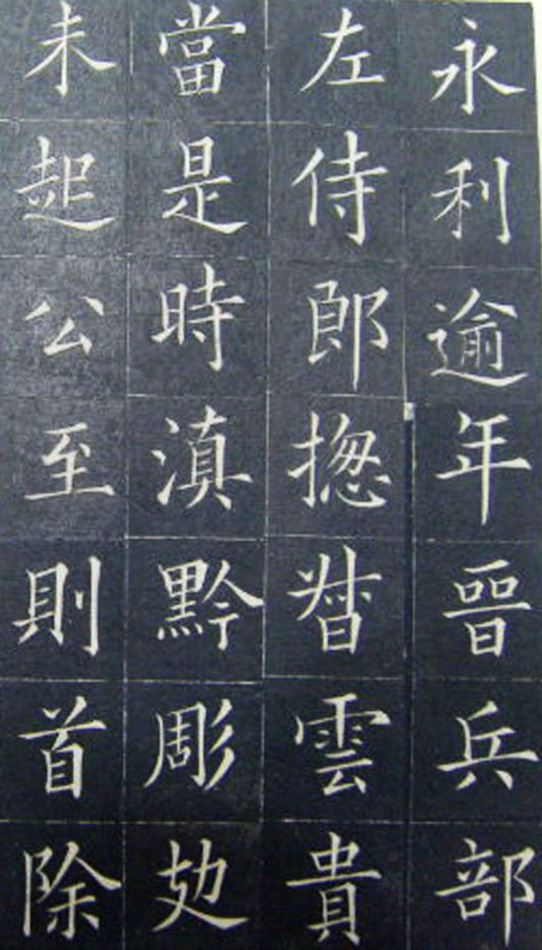 永利逾年晉兵部
左侍郎揔督雲貴
當是時滇黔彫攰
未起公至則首除